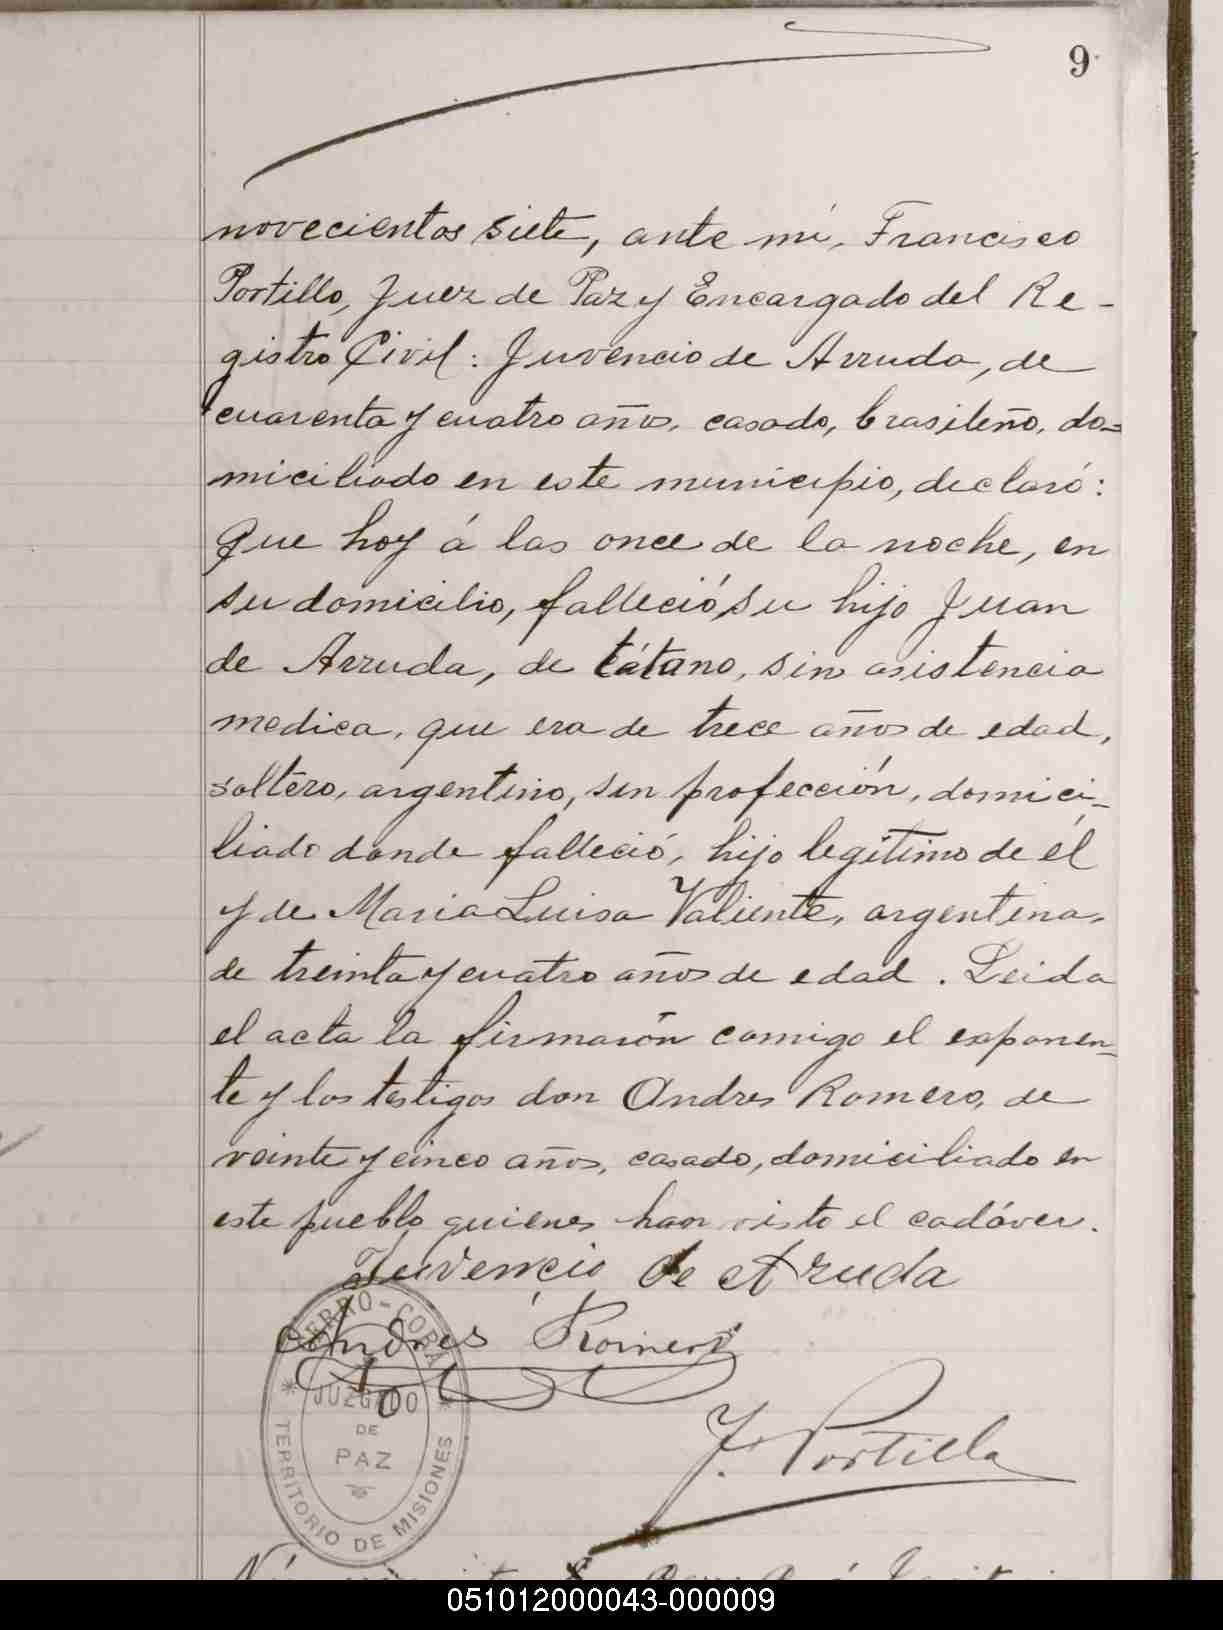 9
novecientos siete, ante mi, Francisco
Portillo, Juez de Paz y Encargado del Re-
gistro Civil: Juvencio de Arruda, de
cuarenta y cuatro años, casado, brasileño, do=
miciliado en este municipio, declaró:
Que hoy á las once de la noche, en
su domicilio, falleció, su hijo Juan
de Arruda, de tétano, sin asistencia
medica, que era de trece años de edad,
soltero, argentino, sin profección, domici-
liado donde falleció, hijo legítimo de él
y de Maria Luisa Valiente, argentina,
de treinta y cuatro años de edad. Leida
el acta la firmarón comigo el exponen-
te y los testigos don Andres Romero, de
veinte y cinco años, casado, domiciliado en
este pueblo quienes han visto el cadáver.
Juvencio de Arruda
Andrés Romero
CERRO-CORÁ
JUZGADO
DE
PAZ
TERRITORIO DE MISIONES
F. Portillo
051012000043-000009